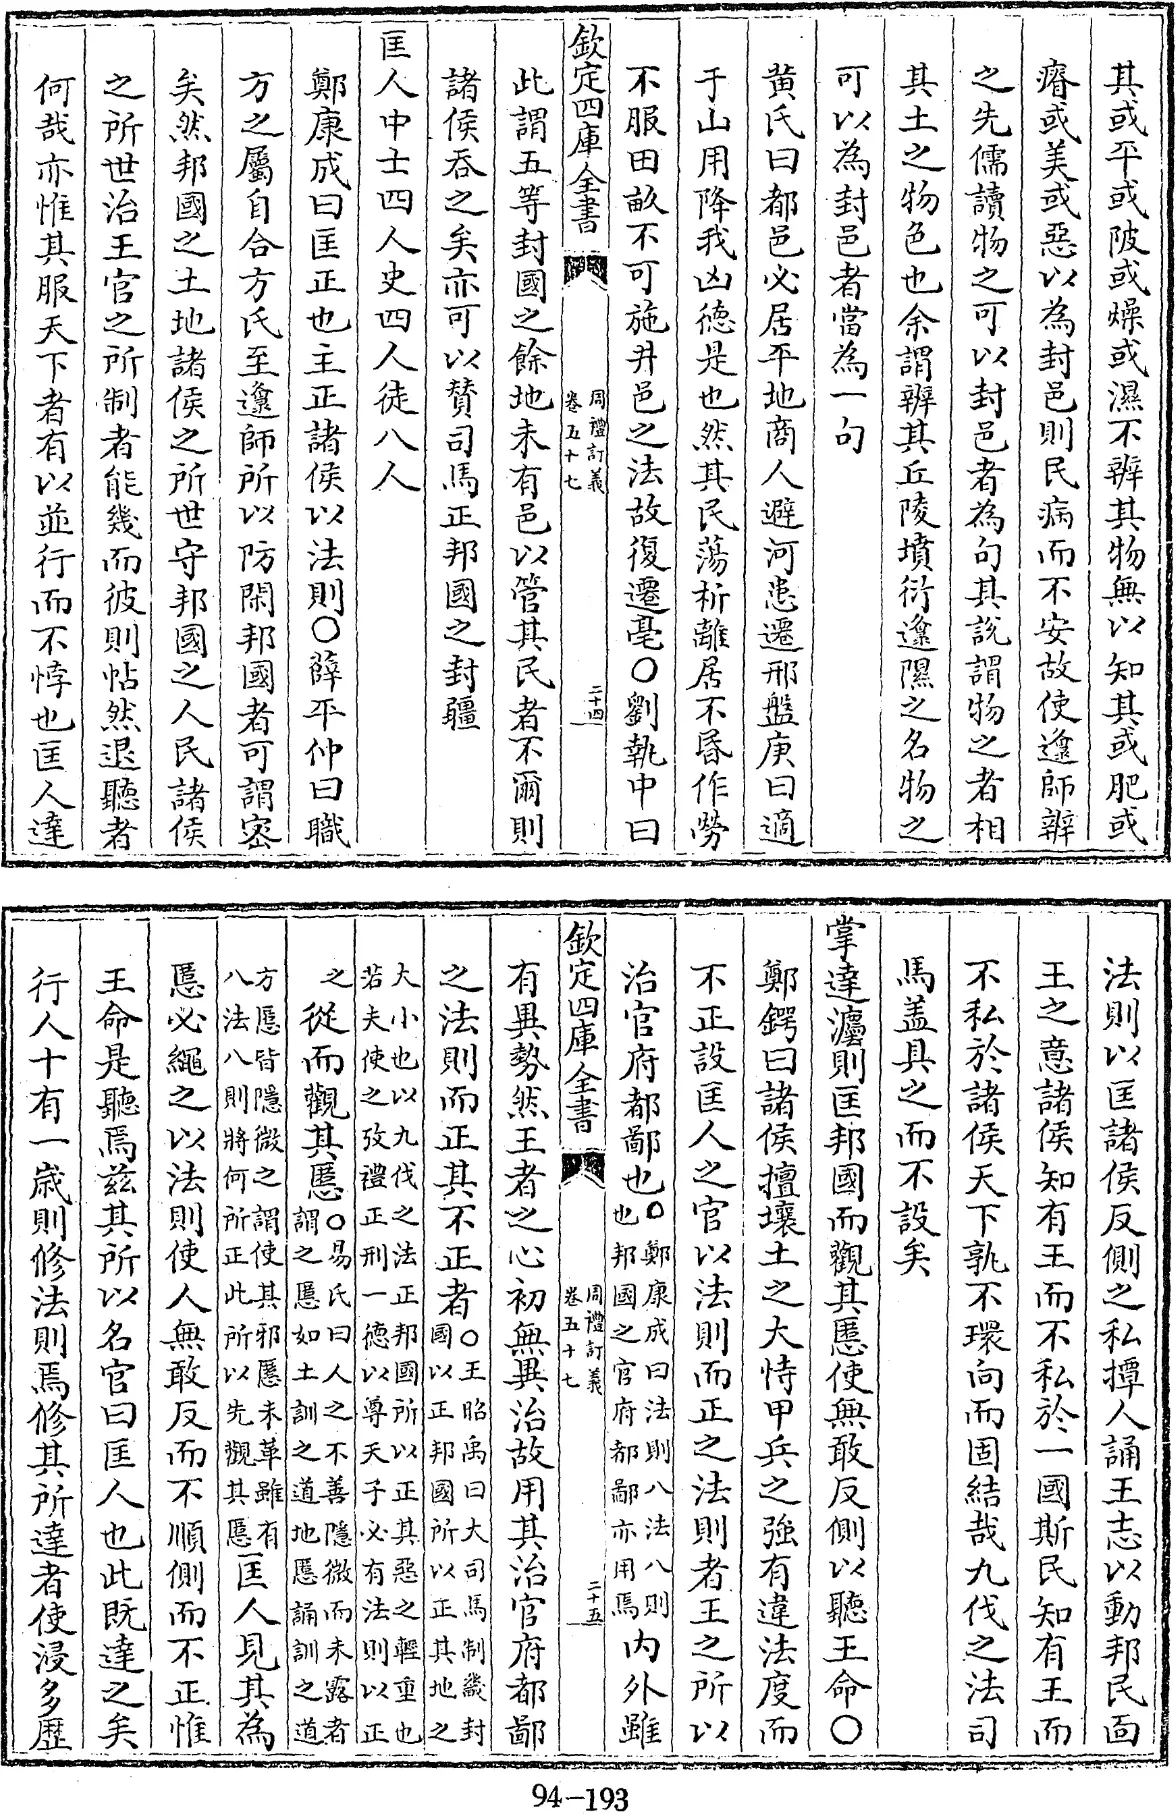 其或平或陂或燥或濕不辨其物無以知其或肥或
瘠或美或惡以為封邑則民病而不安故使邍師辨
之先儒讀物之可以封邑者為句其說謂物之者相
其土之物色也余謂辨其丘陵墳衍邍隰之名物之
可以為封邑者當為一句
黃氏曰都邑必居平地商人避河患遷邢盤庚曰適
于山用降我凶徳是也然其民蕩析離居不昏作勞
不服田畝不可施井邑之法故復遷亳○劉執中曰
欽定四庫全書
周禮訂義
卷五十七
二十四
此謂五等封國之餘地未有邑以管其民者不爾則
諸侯吞之矣亦可以賛司馬正邦國之封疆
匡人中士四人史四人徒八人
鄭康成曰匡正也主正諸侯以法則○薛平仲曰職
方之屬自合方氏至邍師所以防閑邦國者可謂宻
矣然邦國之土地諸侯之所世守邦國之人民諸侯
之所世治王官之所制者能幾而彼則帖然退聽者
何哉亦惟其服天下者有以並行而不悖也匡人達
法則以匡諸侯反側之私撢人誦王志以動邦民面
王之意諸侯知有王而不私於一國斯民知有王而
不私於諸侯天下孰不環向而固結哉九伐之法司
馬盖具之而不設矣
掌達灋則匡邦國而觀其慝使無敢反側以聽王命○
鄭鍔曰諸侯擅壤土之大恃甲兵之強有違法度而
不正設匡人之官以法則而正之法則者王之所以
治官府都鄙也○鄭康成曰法則八法八則也邦國之官府都鄙亦用焉內外雖
欽定四庫全書
周禮訂義
卷五十七
二十五
有異勢然王者之心初無異治故用其治官府都鄙
之法則而正其不正者○王昭禹曰大司馬制畿封國以正邦國所以正其地之
大小也以九伐之法正邦國所以正其惡之輕重也若夫使之攷禮正刑一徳以尊天子必有法則以正
之從而觀其慝○易氏曰人之不善隱微而未露者謂之慝如土訓之道地慝誦訓之道
方慝皆隱微之謂使其邪慝未革雖有八法八則將何所正此所以先觀其慝匡人見其為
慝必繩之以法則使人無敢反而不順側而不正惟
王命是聽焉兹其所以名官曰匡人也此既達之矣
行人十有一歲則修法則焉修其所達者使浸多歷
94-193